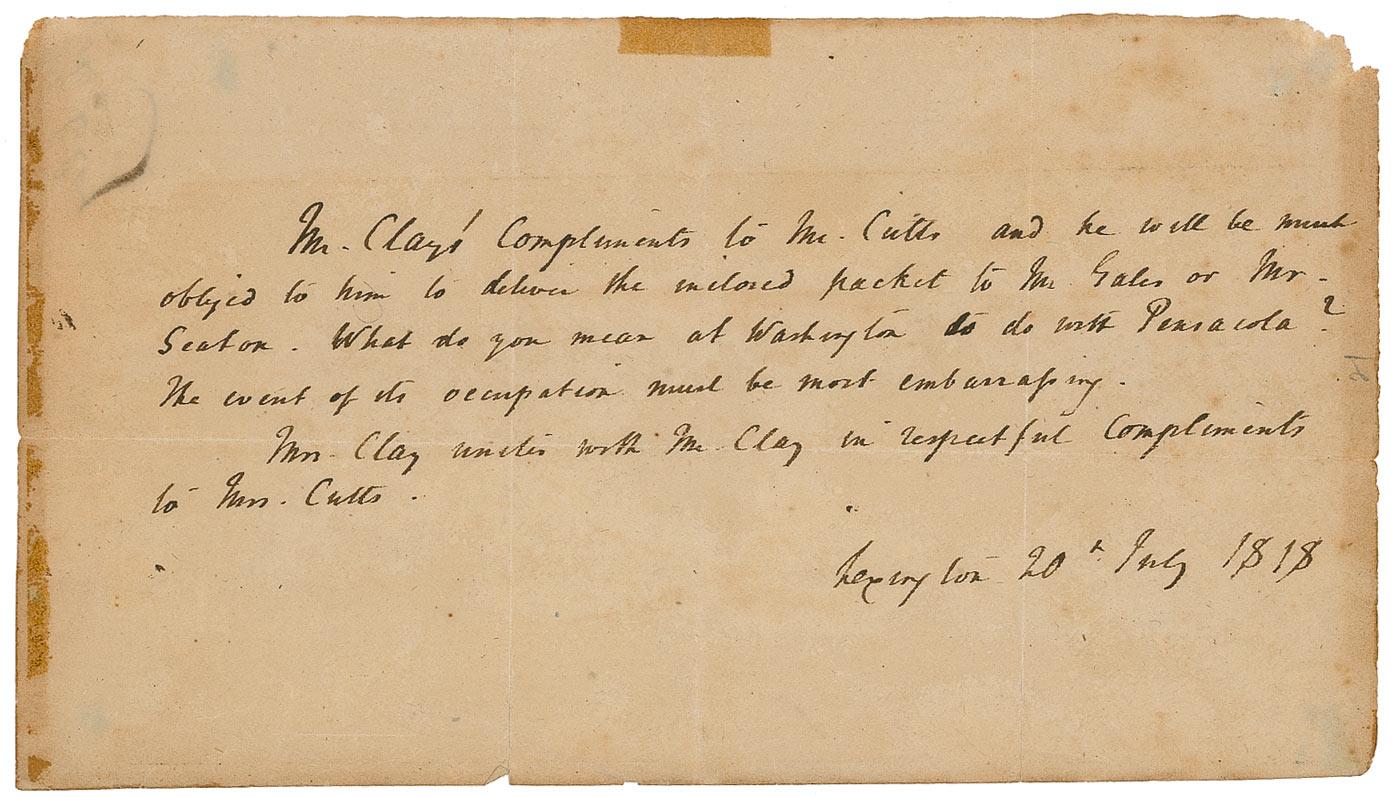 Mr. Clay's Compliments to Mr. Cutts and he will be much
obliged to him to deliver the inclosed packet to Mr Gales or Mr.
Seaton. What do you mean at Washington to do with Pensacola?
The event of its occupation must be most embarrassing.
Mrs. Clay unites with Mr. Clay in respectful Compliments
to Mrs. Cutts.
Lexington 20h July 1818